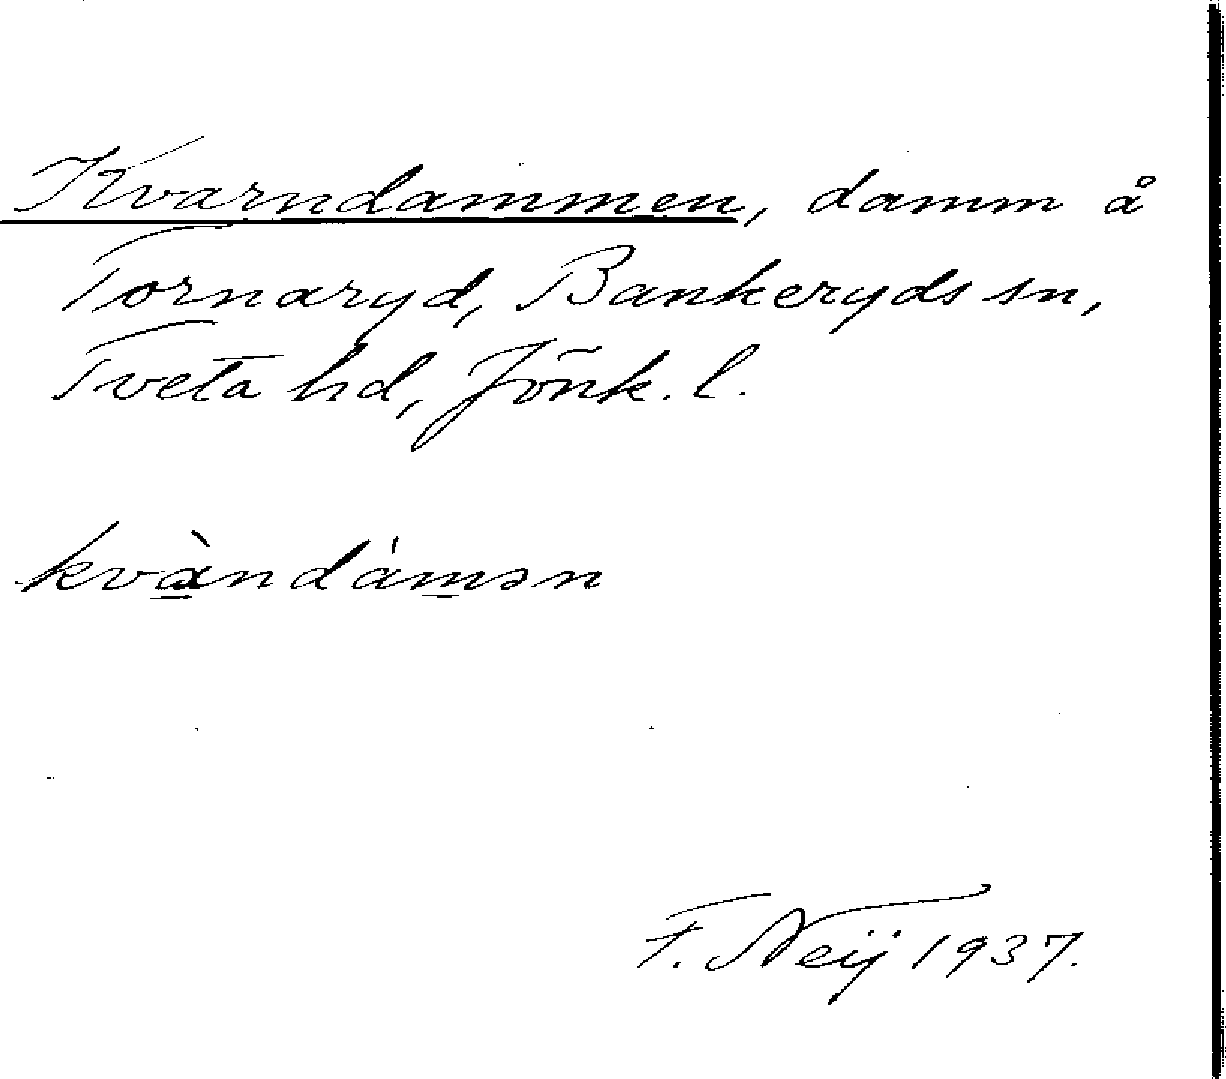 Kvarndammen, damm å
Tornaryd, Bankeryds sn,
Tveta hd, Jönk. l.
kvàndámən
F. Neij 1937.